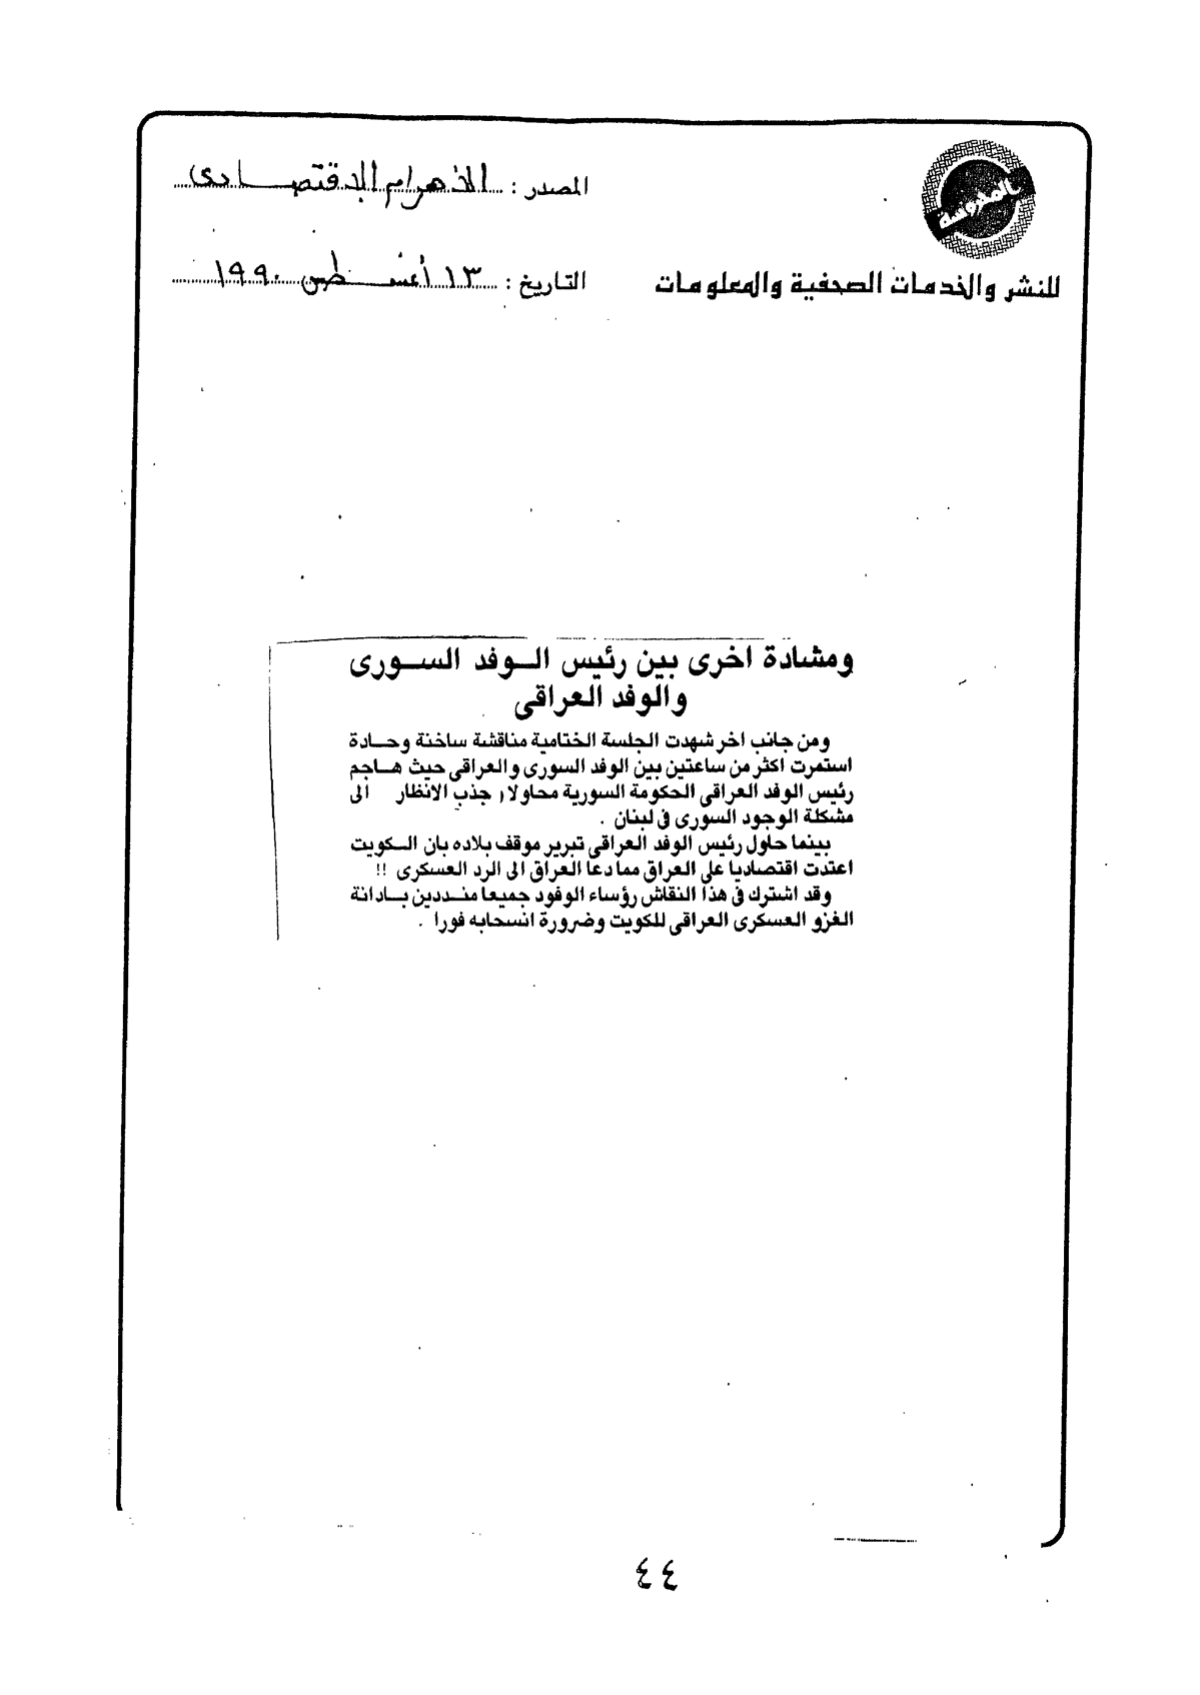 المحروسة
للنشر والخدمات الصحفية والمعلومات
المصدر : الأهرام الاقتصادى
التاريخ : ١٣ أغسطس ١٩٩٠
ومشادة اخرى بين رئيس الوفد السورى
والوفد العراقى
ومن جانب اخر شهدت الجلسة الختامية مناقشة ساخنة وحادة
استمرت اكثر من ساعتين بين الوفد السورى والعراقى حيث هاجم
رئيس الوفد العراقى الحكومة السورية محاولا جذب الانظار الى
مشكلة الوجود السورى فى لبنان .
بينما حاول رئيس الوفد العراقى تبرير موقف بلاده بان الكويت
اعتدت اقتصاديا على العراق مما دعا العراق الى الرد العسكرى !!
وقد اشترك فى هذا النقاش رؤساء الوفود جميعا منددين بادانة
الغزو العسكرى العراقى للكويت وضرورة انسحابه فورا .
٤٤